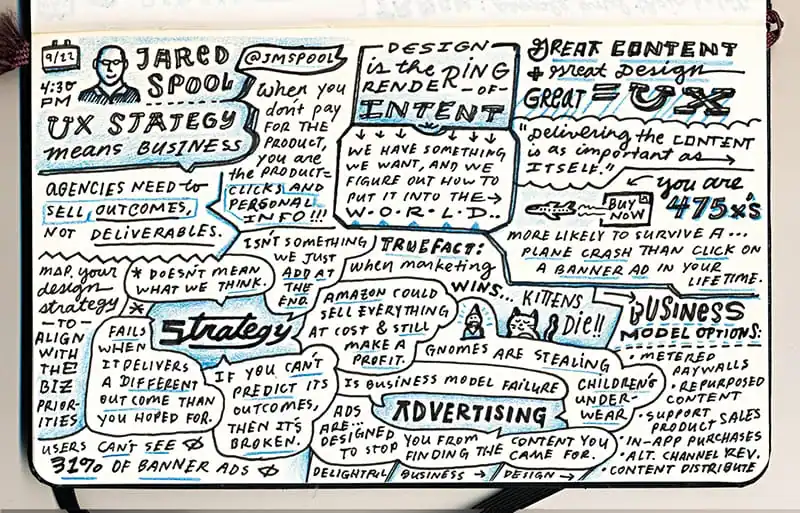 9/22
4:30
PM
JARED
SPOOL
@JMSPOOL
UX STATEGY
means BUSINESS
When you
don't pay
FOR THE
PRODUCT,
you are
the PRODUCT=
CLICKS AND
PERSONAL
INFO!!!
AGENCIES NEED to
SELL OUTCOMES,
NOT DELIVERABLES.
DESIGN
is the RING
RENDER-OF-
INTENT
WE HAVE SOMETHING
WE WANT, AND WE
FIGURE OUT HOW TO
PUT IT INTO THE→
W·O·R·L·D..
GREAT CONTENT
+ great Design
GREAT = UX
"Delivering the CONTENT
is as important as
ITSELF."
BUY
NOW
you are
475x's
MORE LIKELY TO SURVIVE A...
PLANE CRASH THAN CLICK ON
A BANNER AD IN YOUR
LIFETIME.
MAP your
design
strategy
-TO-
ALIGN
WITH
THE
BIZ
PRIOR-
ITIES
* DOESN'T MEAN
WHAT WE THINK.
ISN'T SOMETHING
WE JUST
ADD AT
THE
END.
*
Strategy
FAILS
WHEN
IT DELIVERS
A DIFFERENT
OUTCOME THAN
YOU HOPED FOR.
IF YOU CAN'T
PREDICT ITS
OUTCOMES,
THEN IT'S
BROKEN.
USERS CAN'T SEE
31% OF BANNER ADS
TRUEFACT:
when marketing
WINS... KITTENS
Die!!
AMAZON COULD
SELL EVERYTHING
AT COST & STILL
MAKE A
PROFIT.
GNOMES ARE STEALING
CHILDREN'S
UNDER-
WEAR.
IS BUSINESS MODEL FAILURE
ADVERTISING
ADS
ARE...
DESIGNED
TO STOP YOU FROM
FINDING THE CONTENT YOU
CAME FOR.
DELIGHTFUL BUSINESS → DESIGN →
BUSINESS
MODEL OPTIONS:
• METERED
PAYWALLS
• REPURPOSED
CONTENT
• SUPPORT
PRODUCT SALES
• IN-APP PURCHASES
• ALT. CHANNEL REV.
• CONTENT DISTRIBUTE